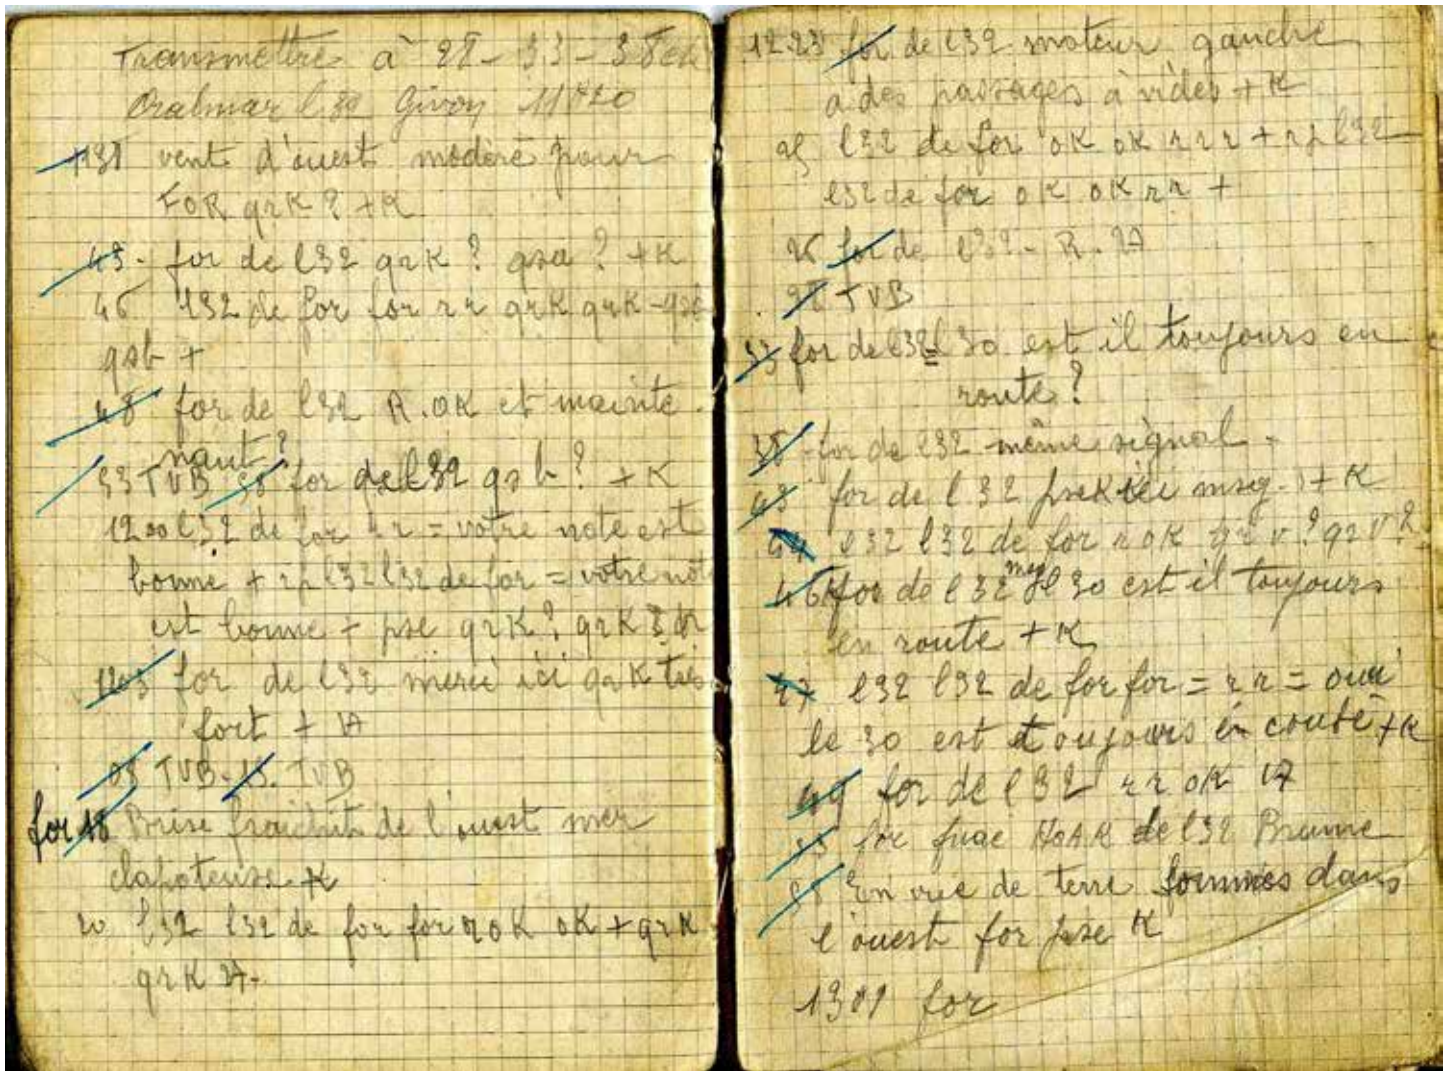 Transmettre à 28 - 33 - 38
l32 Givon 11h20
1138 vent d'ouest modéré pour
FOR qrK ? +K
43 - for de l32 qrK ? qsa ? +K
46 l32 de for for rr qrK qrK -
qsb +
48 for de l32 R.OK et mainte
nant ?
53 TVB 58 for de l32 qsb ? +K
1200 l32 de for rr = votre note est
bonne + rp l32 l32 de for = votre not
est bonne + pse qrK ? qrK ?
1203 for de l32 merci ici qrK très
fort +
08 TVB - 13. TVB
for 18 Brise fraîchit de l'ouest mer
clapoteuse +K
20 l32 l32 de for for r OK OK + qrK
qrK
1223 for de l32 moteur gauche
a des passages à vides + K
25 l32 de for OK OK rrr + rp l32
l32 de for OK OK rr +
26 for de l32 - R.
28 TVB
33 for de l32 = l30 est il toujours en
route ?
38 - for de l32 même signal -
43 for de l32 pse K ici msg. + K
44 l32 l32 de for r OK qrv ? qrv ?
46 for de l32 msg le 30 est il toujours
en route + K
47 l32 l32 de for for = rr = oui
le 30 est toujours en +K
49 for de l32 rr OK
55 for de l32 Brume
58 En vue de terre sommes dans
l'ouest for pse K
1301 for